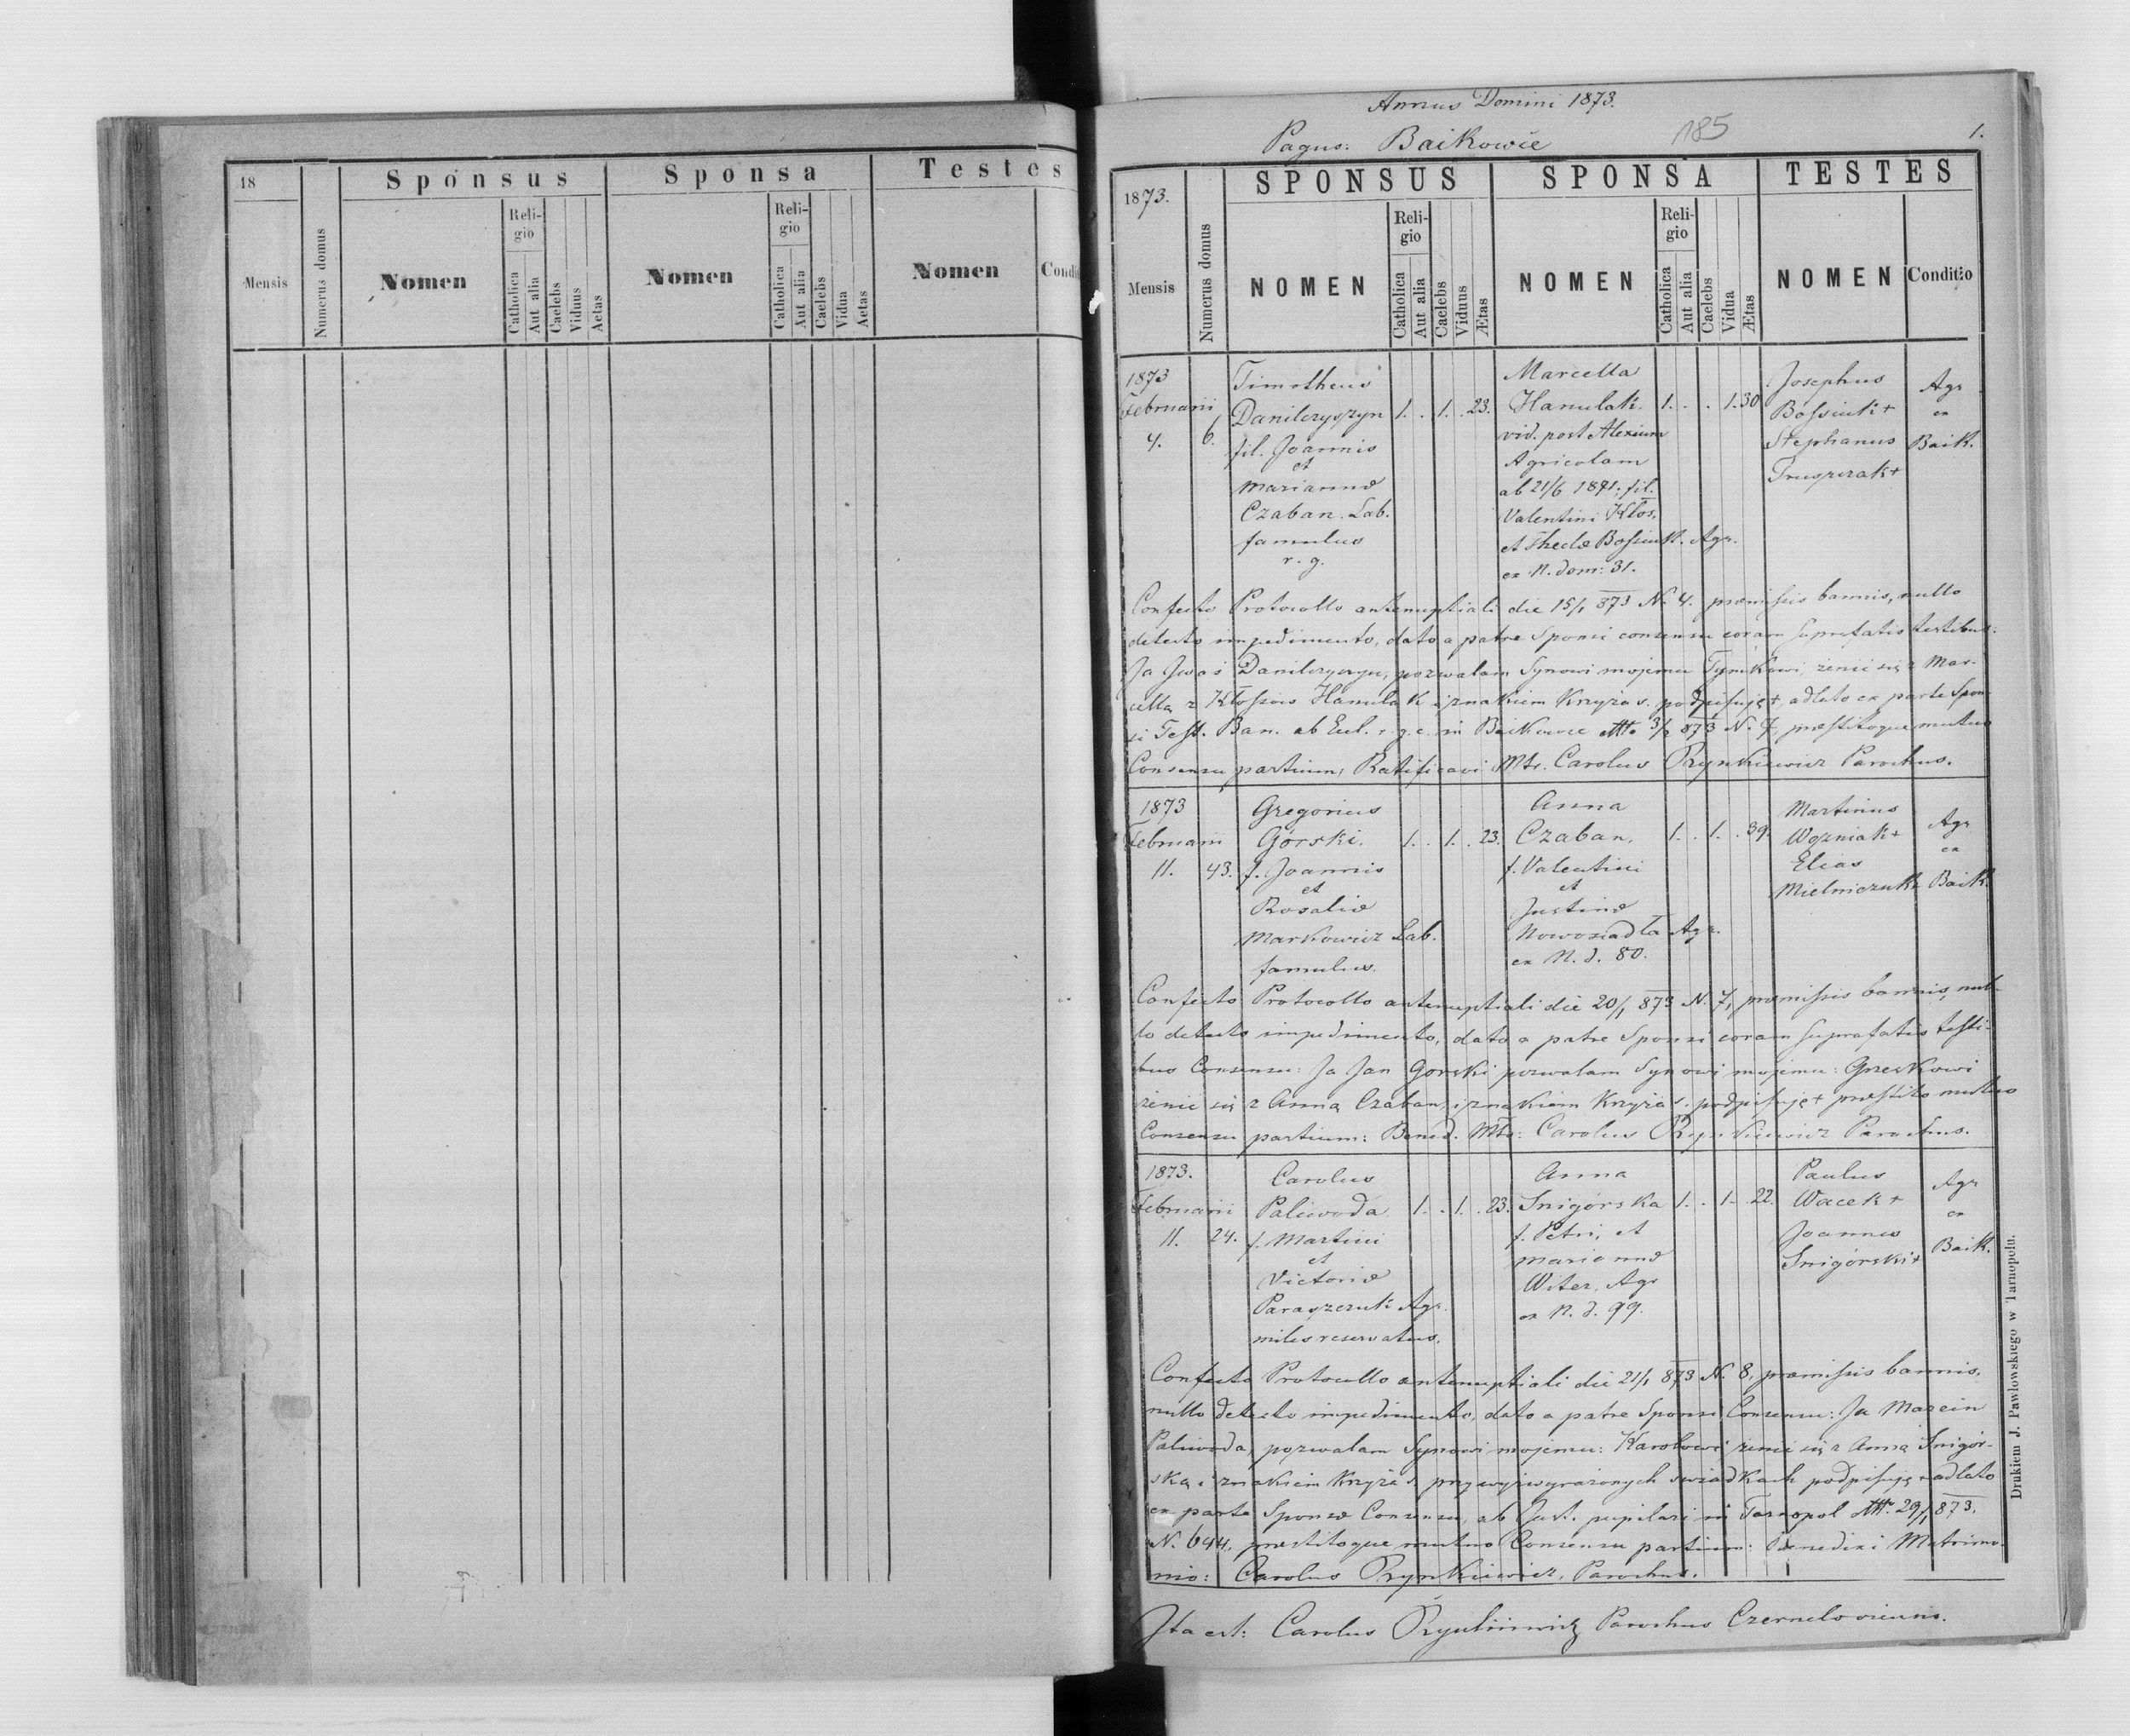 18
Sponsus
Sponsa
Testes
Mensis
Numerus domus
Nomen
Reli-
gio
Catholica
Aut alia
Caelebs
Viduus
Aetas
Nomen
Reli-
gio
Catholica
Aut alia
Caelebs
Vidua
Aetas
Nomen
Condit
Annus Domini 1873.
Pagus: Baikowce
185
1.
1873.
SPONSUS
SPONSA
TESTES
Mensis
Numerus domus
NOMEN
Reli-
gio
Catholica
Aut alia
Caelebs
Viduus
Ætas
NOMEN
Reli-
gio
Catholica
Aut alia
Caelebs
Vidua
Ætas
NOMEN
Conditio
1873
Februarii
4.
6.
Timotheus
Danilczyszyn
fil. Joannis
et
Mariannæ
Czaban. Lab.
famulus
r. g.
1. . 1. . 23.
Marcella
Hanulak.
vid. post Alexium
Agricolam
ab 21/6 1871, fil.
Valentini Kłos,
et Theclæ Bossiuk. Agr.
ex N. dom: 31.
1. . . 1. 30
Josephus
Bossiuk +
Stephanus
Agr
ex
Baik.
Confecto Protocollo antenuptiali die 15/1 873 N. 4. præmissis bannis, nullo
detecto impedimento, dato a patre Sponsi consensu coram suprafatis testibus:
Ja Iwaś Danilczyszyn, pozwalam Synowi mojemu Tymkowi żenić się z Mar-
cellą z Kłosiów Hanulak i znakiem Krzyża s. podpisuję +, adlato ex parte Spon-
si Test. Ban. ab Eccl. r. g. c. in Baikowce dtto 3/2 873 N. 7, præstitoque mutuo
Consensu partium; Ratificavi Mtr. Carolus Rynkiewicz Parochus.
1873
Februarii
11.
43.
Gregorius
Górski.
f. Joannis
et
Rosaliæ
Markowicz Lab.
famulus.
1. . 1. . 23.
Anna
Czaban.
f. Valentini
et
Justinæ
Nowosiadła Agr.
ex N. d. 80.
1. . 1. . 39.
Martinus
Wozniak +
Elias
Mielniczuk +
Agr
ex
Baik.
Confecto Protocollo antenuptiali die 20/1 873 N. 7, præmissis bannis, nul-
lo detecto impedimento, dato a patre Sponsi coram suprafatis testi-
bus Consensu: Ja Jan Gorski pozwalam Synowi mojemu: Grześkowi
żenić się z Anną Czaban, i znakiem Krzyża s. podpisuję + præstito mutuo
Consensu partium: Bened. Mtr: Carolus Rynkiewicz Parochus.
1873.
Februarii
11.
24.
Carolus
Paliwoda
f. Martini
et
Victoriæ
Paraszczuk Agr.
miles reservatus.
1. . 1. . 23.
Anna
Snigórska
f. Petri, et
Mariannæ
Witer, Agr
ex N. d. 99.
1. . 1. . 22.
Paulus
Wacek +
Joannes
Snigórski +
Agr
ex
Baik.
Confecto Protocollo antenuptiali die 21/1 873 N. 8, præmissis bannis,
nullo detecto impedimento, dato a patre Sponsi Consensu: Ja Marcin
Paliwoda, pozwalam Synowi mojemu: Karolowi żenić się z Anną Snigór-
ską i znakiem Krzyża s. przy wyżwyrażonych świadkach podpisuję + adlato
ex parte Sponsæ Consensu, ab Jud. pupilari in Tarnopol dtto 29/1 873.
N. 644. præstitoque mutuo Consensu partium: Benedixi Matrimo-
nio: Carolus Rynkiewicz, Parochus.
Drukiem J. Pawłowskiego w Tarnopolu.
Ita est: Carolus Rynkiewicz Parochus Czerneloviensis.